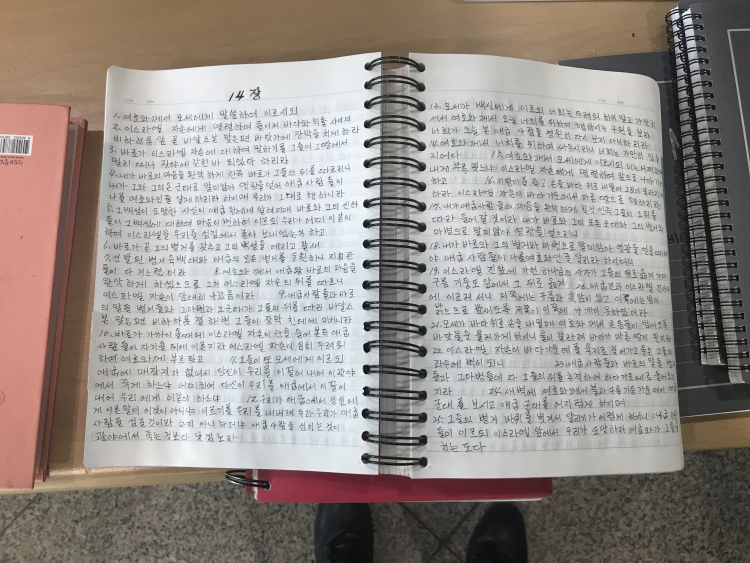 14장
1. 여호와께서 모세에게 말씀하여 이르시되
2. 이스라엘 자손에게 명령하여 돌이켜 바다와 믹돌 사이의
비하히롯 앞 곧 바알스본 맞은편 바닷가에 장막을 치게 하라
3. 바로가 이스라엘 자손에 대하여 말하기를 그들이 그 땅에서
멀리 떠나 광야에 갇힌 바 되었다 하리라
4. 내가 바로의 마음을 완악하게 한즉 바로가 그들의 뒤를 따르리니
내가 그와 그의 온 군대로 말미암아 영광을 얻어 애굽 사람들이
나를 여호와인줄 알게 하리라 하시매 무리가 그대로 행하니라
5. 그 백성이 도망한 사실이 애굽 왕에게 알려지매 바로와 그의 신하
들이 그 백성에 대하여 마음이 변하여 이르되 우리가 어찌 이같이
하여 이스라엘을 우리를 섬김에서 놓아 보내었는가 하고
6. 바로가 곧 그의 병거를 갖추고 그의 백성을 데리고 갈새
7. 선발된 병거 육백대와 애굽의 모든 병거를 동원하니 지휘관
들이 다 거느렸더라 8. 여호와께서 애굽 왕 바로의 마음을
완악하게 하셨으므로 그가 이스라엘 자손의 뒤를 따르니
이스라엘 자손이 담대히 나갔음이라 9. 애굽 사람들과 바로
의 말들 병거들과 그 마병과 그 군대가 그들의 뒤를 따라 바알스
본 맞은편 비하히롯 곁 해변 그들이 장막 친데에 미치니라
10. 바로가 가까이 올때에 이스라엘 자손이 눈을 들어 본즉 애굽
사람들이 자기들 뒤에 이른지라 이스라엘 자손이 심히 두려워
하여 여호와께 부르짖고 11. 그들이 또 모세에게 이르되
애굽에 매장지가 없어서 당신이 우리를 이끌어 내어 이 광야
에서 죽게 하느냐 어찌하여 당신이 우리를 애굽에서 이끌어
내어 우리에게 이같이 하느냐 12. 우리가 애굽에서 당신에
게 이른 말이 이것이 아니냐 이르기를 우리를 내버려 두라 우리가 애굽
사람을 섬길 것이라 하지 아니하더냐 애굽 사람을 섬기는 것이
광야에서 죽는 것보다 낫겠노라
13. 모세가 백성에게 이르되 너희는 두려워하지 말고 가만히
서서 여호와께서 오늘 너희를 위하여 행하시는 구원을 보라
너희가 오늘 본 애굽 사람을 영원히 다시 보지 아니하리라
14. 여호와께서 너희를 위하여 싸우시리니 너희는 가만히 있을
지어다 15. 여호와께서 모세에게 이르시되 너는 어찌하여
내게 부르짖느냐 이스라엘 자손에게 명령하여 앞으로 나아가게
하고 16. 지팡이를 들고 손을 바다 위로 내밀어 그것이 갈라지게
하라 이스라엘 자손이 바다 가운데서 마른 땅으로 행하리라
17. 내가 애굽 사람들의 마음을 완악하게 할 것인즉 그들이 그 뒤를
따라 들어갈 것이라 내가 바로와 그의 모든 군대와 그의 병거와
마병으로 말미암아 영광을 얻으리니
18. 내가 바로와 그의 병거와 마병으로 말미암아 영광을 얻을 때에
야 애굽 사람들이 나를 여호와인 줄 알리라 하시더니
19. 이스라엘 진 앞에 가던 하나님의 사자가 그들의 뒤로 옮겨 가매
구름 기둥도 앞에서 그 뒤로 옮겨 20. 애굽 진과 이스라엘 진 사이
에 이르러 서니 저쪽에는 구름과 흑암이 있고 이쪽에는 밤이
밝으므로 밤새도록 저쪽이 이쪽에 가까이 못하였더라
21. 모세가 바다 위로 손을 내밀매 여호와께서 큰 동풍이 밤새도록
바닷물을 물러가게 하시니 물이 갈라져 바다가 마른 땅이 된지라
22. 이스라엘 자손이 바다 가운데를 육지로 걸어가고 물은 그들의
좌우에 벽이 되니 23. 애굽 사람들과 바로의 말들 병거
들과 그 마병들이 다 그들의 뒤를 추격하여 바다 가운데로 들어오는
지라 24. 새벽에 여호와께서 불과 구름 기둥 가운데서 애굽
군대를 보시고 애굽 군대를 어지럽게 하시며
25. 그들의 병거 바퀴를 벗겨서 달리기가 어렵게 하시니 애굽 사람
들이 이르되 이스라엘 앞에서 우리가 도망하자 여호와가 그들을
치는도다